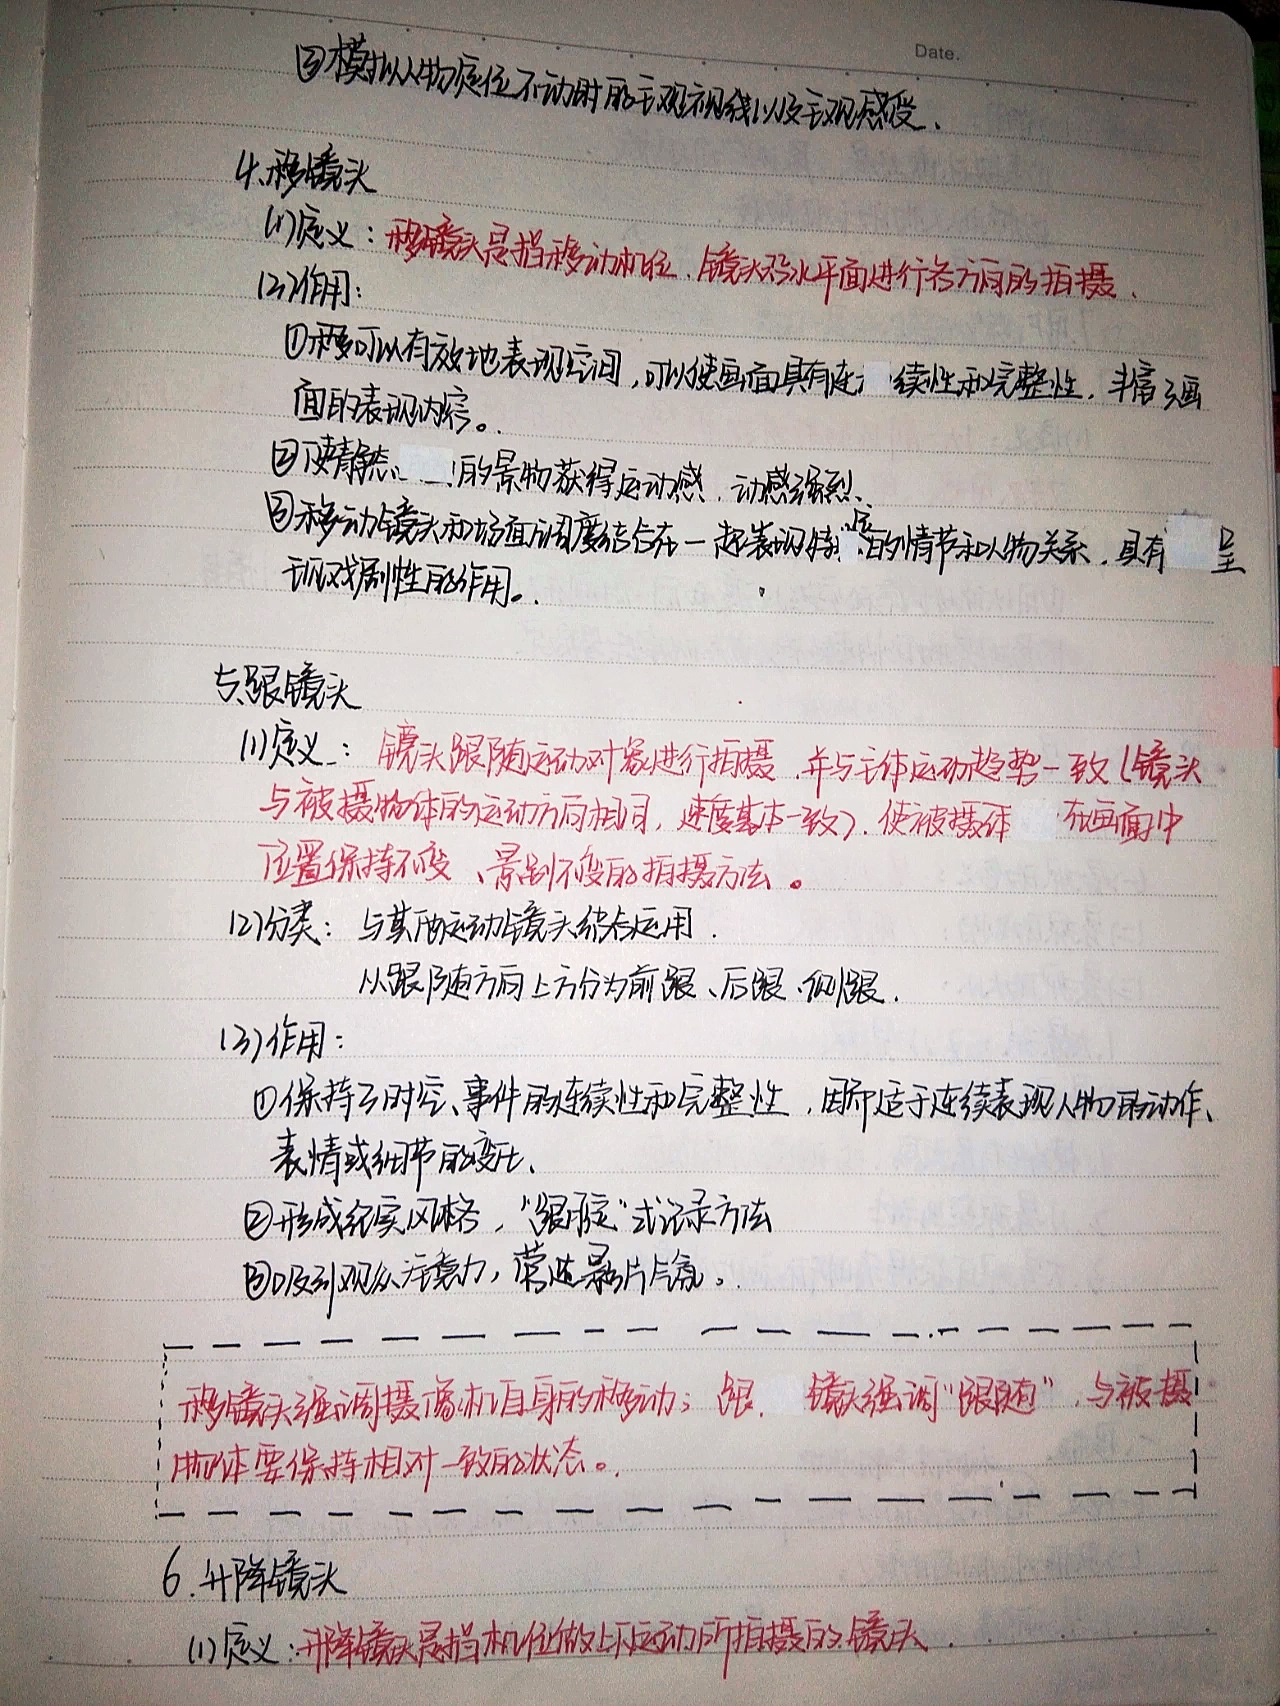 Date.
③模拟人物定位不动时的主观视线以及主观感受、
4、移镜头
(1)定义：移镜头是指移动机位、镜头沿水平面进行各方向的拍摄、
(2)作用：
①移可以有效地表现空间，可以使画面具有连续性和完整性，丰富了画
面的表现内容。
②使静态的景物获得运动感，动感强烈、
③移动镜头和场面调度结合在一起表现特定的情节和人物关系，具有呈
现戏剧性的作用。
5、跟镜头
(1)定义：镜头跟随运动对象进行拍摄，并与主体运动趋势一致（镜头
与被摄物体的运动方向相同，速度基本一致），使被摄体在画面中
位置保持不变、景别不变的拍摄方法。
(2)分类：与其他运动镜头结合运用．
从跟随方向上方分为前跟、后跟、侧跟．
(3)作用：
①保持了时空、事件的连续性和完整性，因而适于连续表现人物的动作、
表情或细节的变化、
②形成纪实风格，“跟腚”式记录方法
③吸引观众注意力，营造影片气氛。
移镜头强调摄像机自身的移动；跟、镜头强调“跟随”，与被摄
物体要保持相对一致的状态。
6．升降镜头
(1)定义：升降镜头是指机位做上下运动所拍摄的镜头．